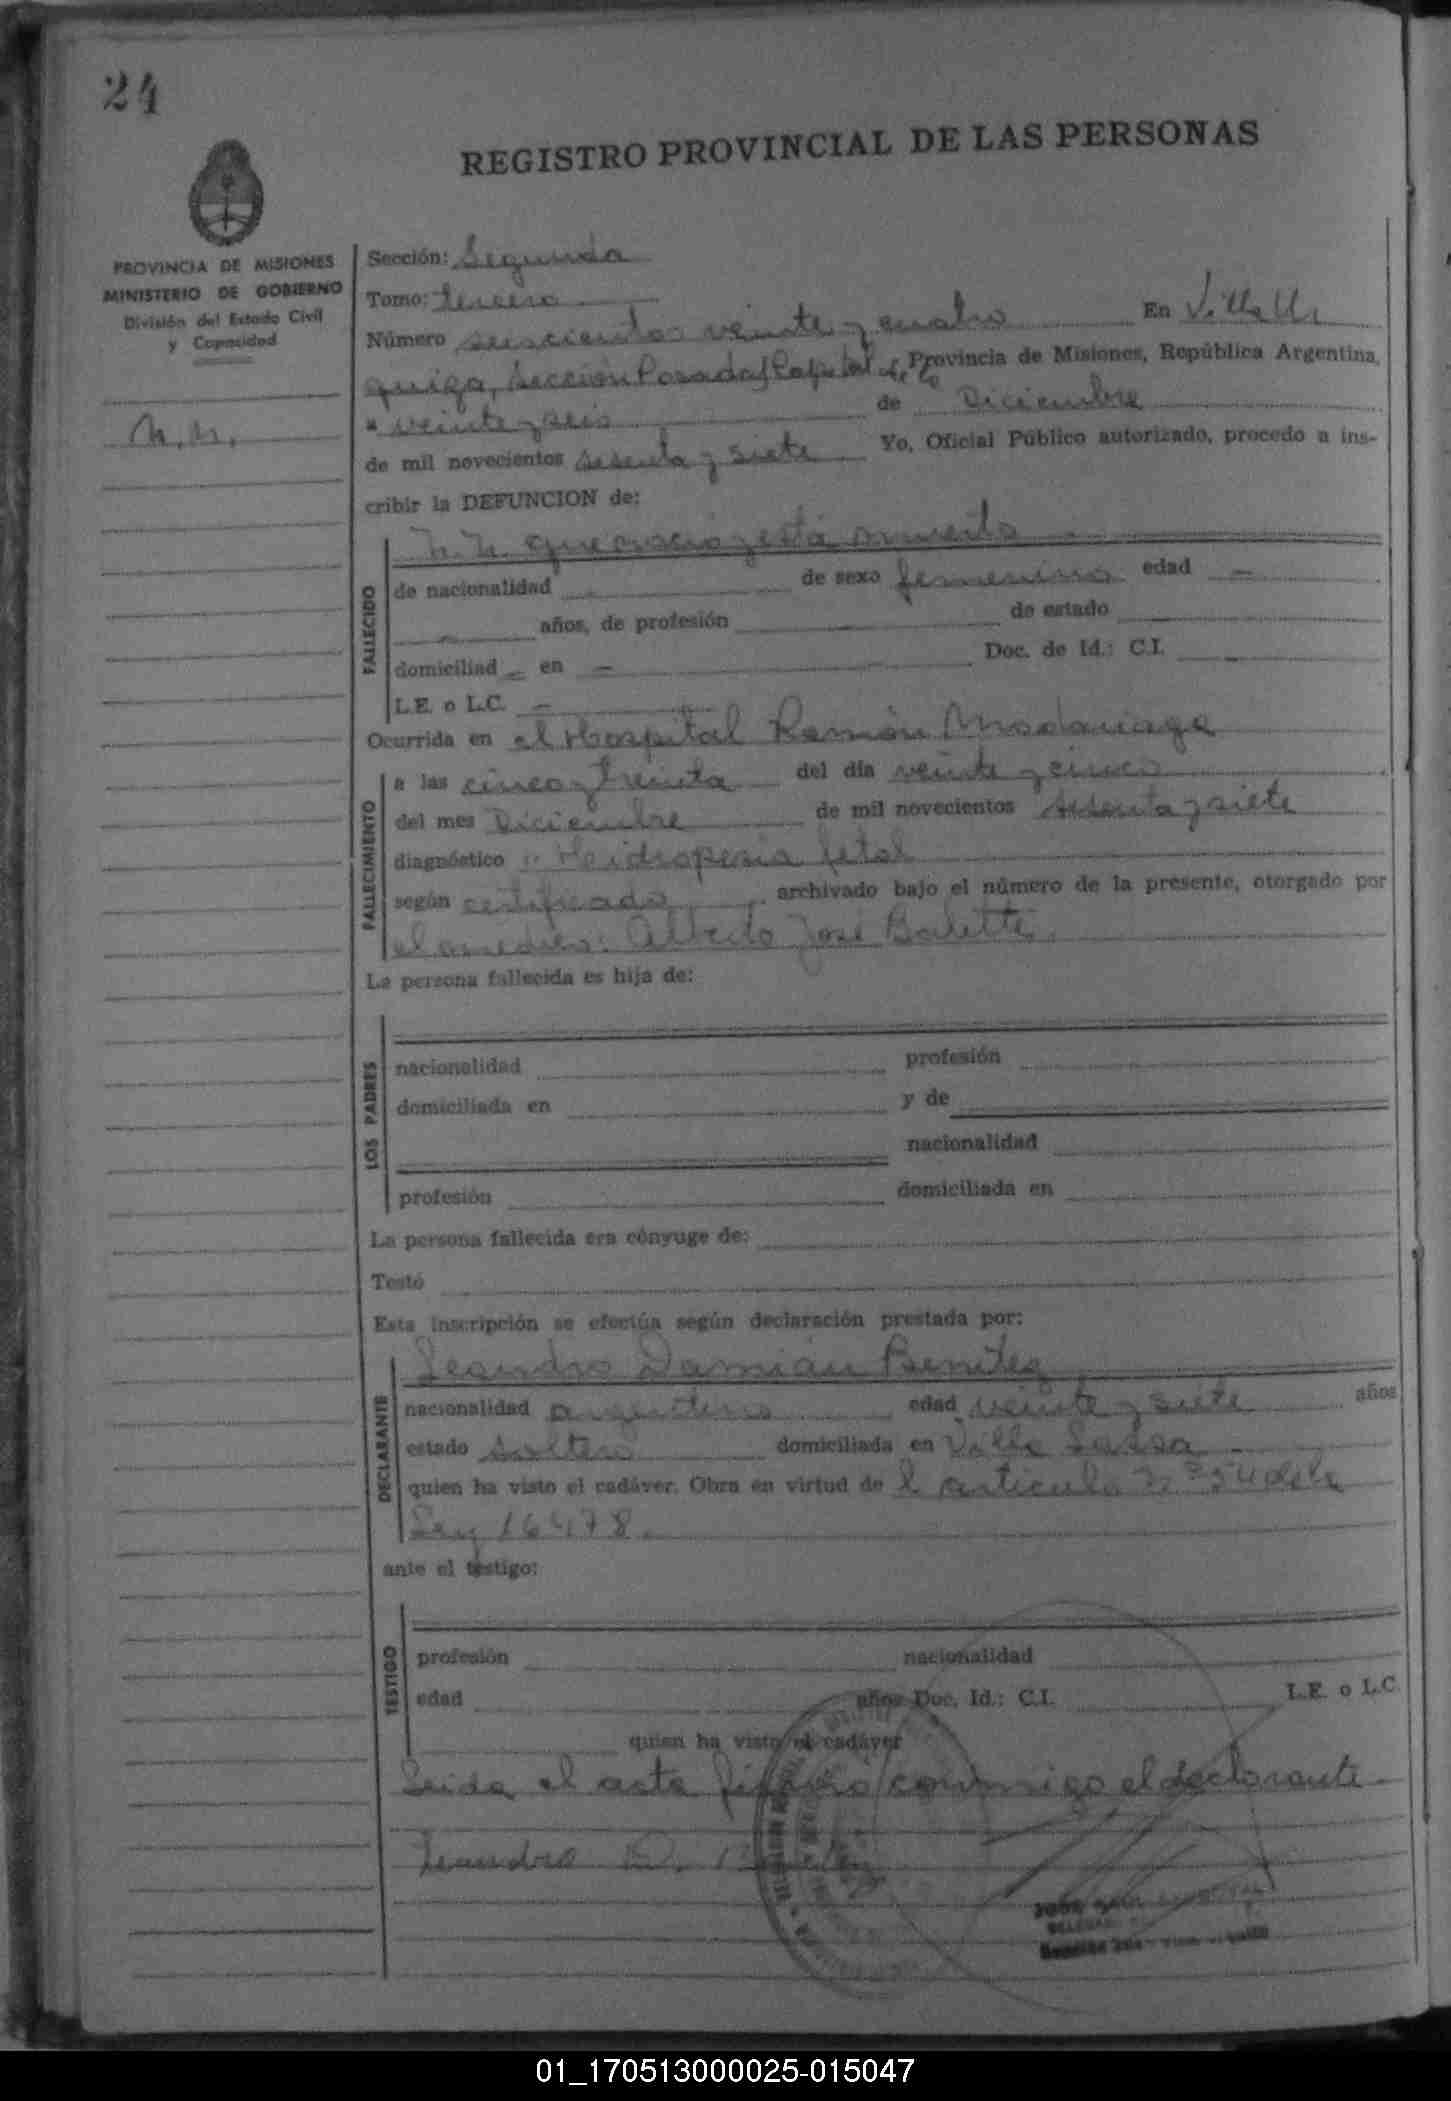 24
REGISTRO PROVINCIAL DE LAS PERSONAS
PROVINCIA DE MISIONES
MINISTERIO DE GOBIERNO
División del Estado Civil
y Capacidad
N.N.
Sección: Segunda
Tomo: tercero
Número seiscientos veinte y cuatro En Villa Ur
quiza, Sección Posadas Capital de la Provincia de Misiones, República Argentina,
a veinte y seis de Diciembre
de mil novecientos sesenta y siete Yo, Oficial Público autorizado, procedo a ins-
cribir la DEFUNCION de:
N.N. que nacio y está muerta
FALLECIDO
de nacionalidad de sexo femenino edad —
años, de profesión de estado
domiciliad — en — Doc. de Id.: C.I. —
L.E. o L.C. —
Ocurrida en el Hospital Ramón Madariaga
FALLECIMIENTO
a las cinco y treinta del día veinte y cinco
del mes Diciembre de mil novecientos sesenta y siete
diagnóstico fetal
según certificado archivado bajo el número de la presente, otorgado por
el médico: Alberto José Baletti
La persona fallecida es hija de:
LOS PADRES
nacionalidad profesión
domiciliada en y de
nacionalidad
profesión domiciliada en
La persona fallecida era cónyuge de:
Testó
Esta inscripción se efectúa según declaración prestada por:
DECLARANTE
Leandro Damián Benitez
nacionalidad argentino edad veinte y siete años
estado soltero domiciliada en Villa
quien ha visto el cadáver. Obra en virtud de l articulo N° 54 de la
Ley 16478.
ante el testigo:
TESTIGO
profesión nacionalidad
edad años Doc. Id.: C.I. L.E. o L.C.
quien ha visto el cadáver
Leida el acta firmó conmigo el declarante
Leandro D.
JOSE
01_170513000025-015047